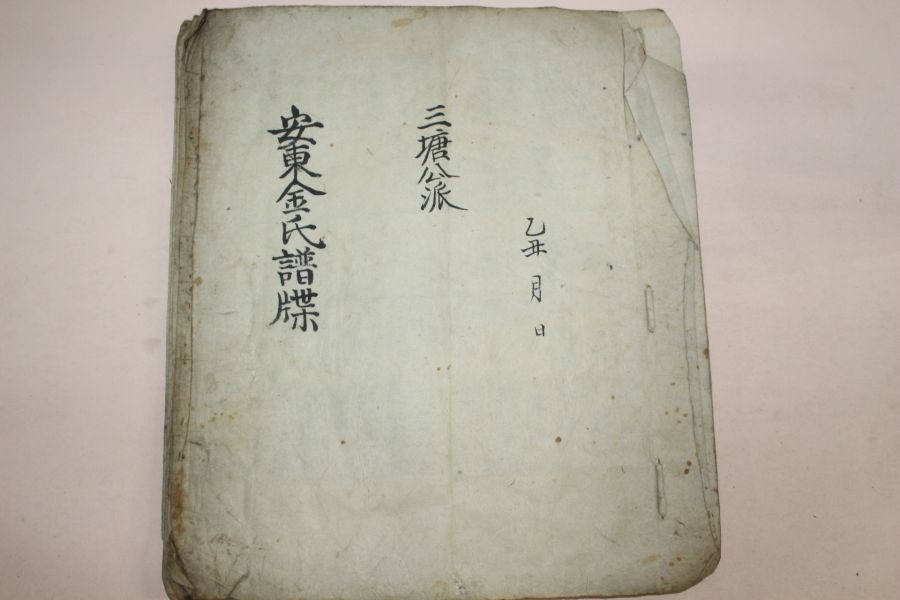 乙丑 月 日
三塘公派
安東金氏譜牒